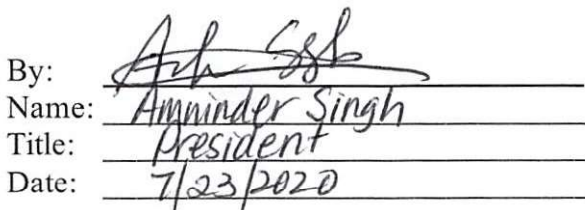 By:
Name: Amninder Singh
Title: President
Date: 7/23/2020